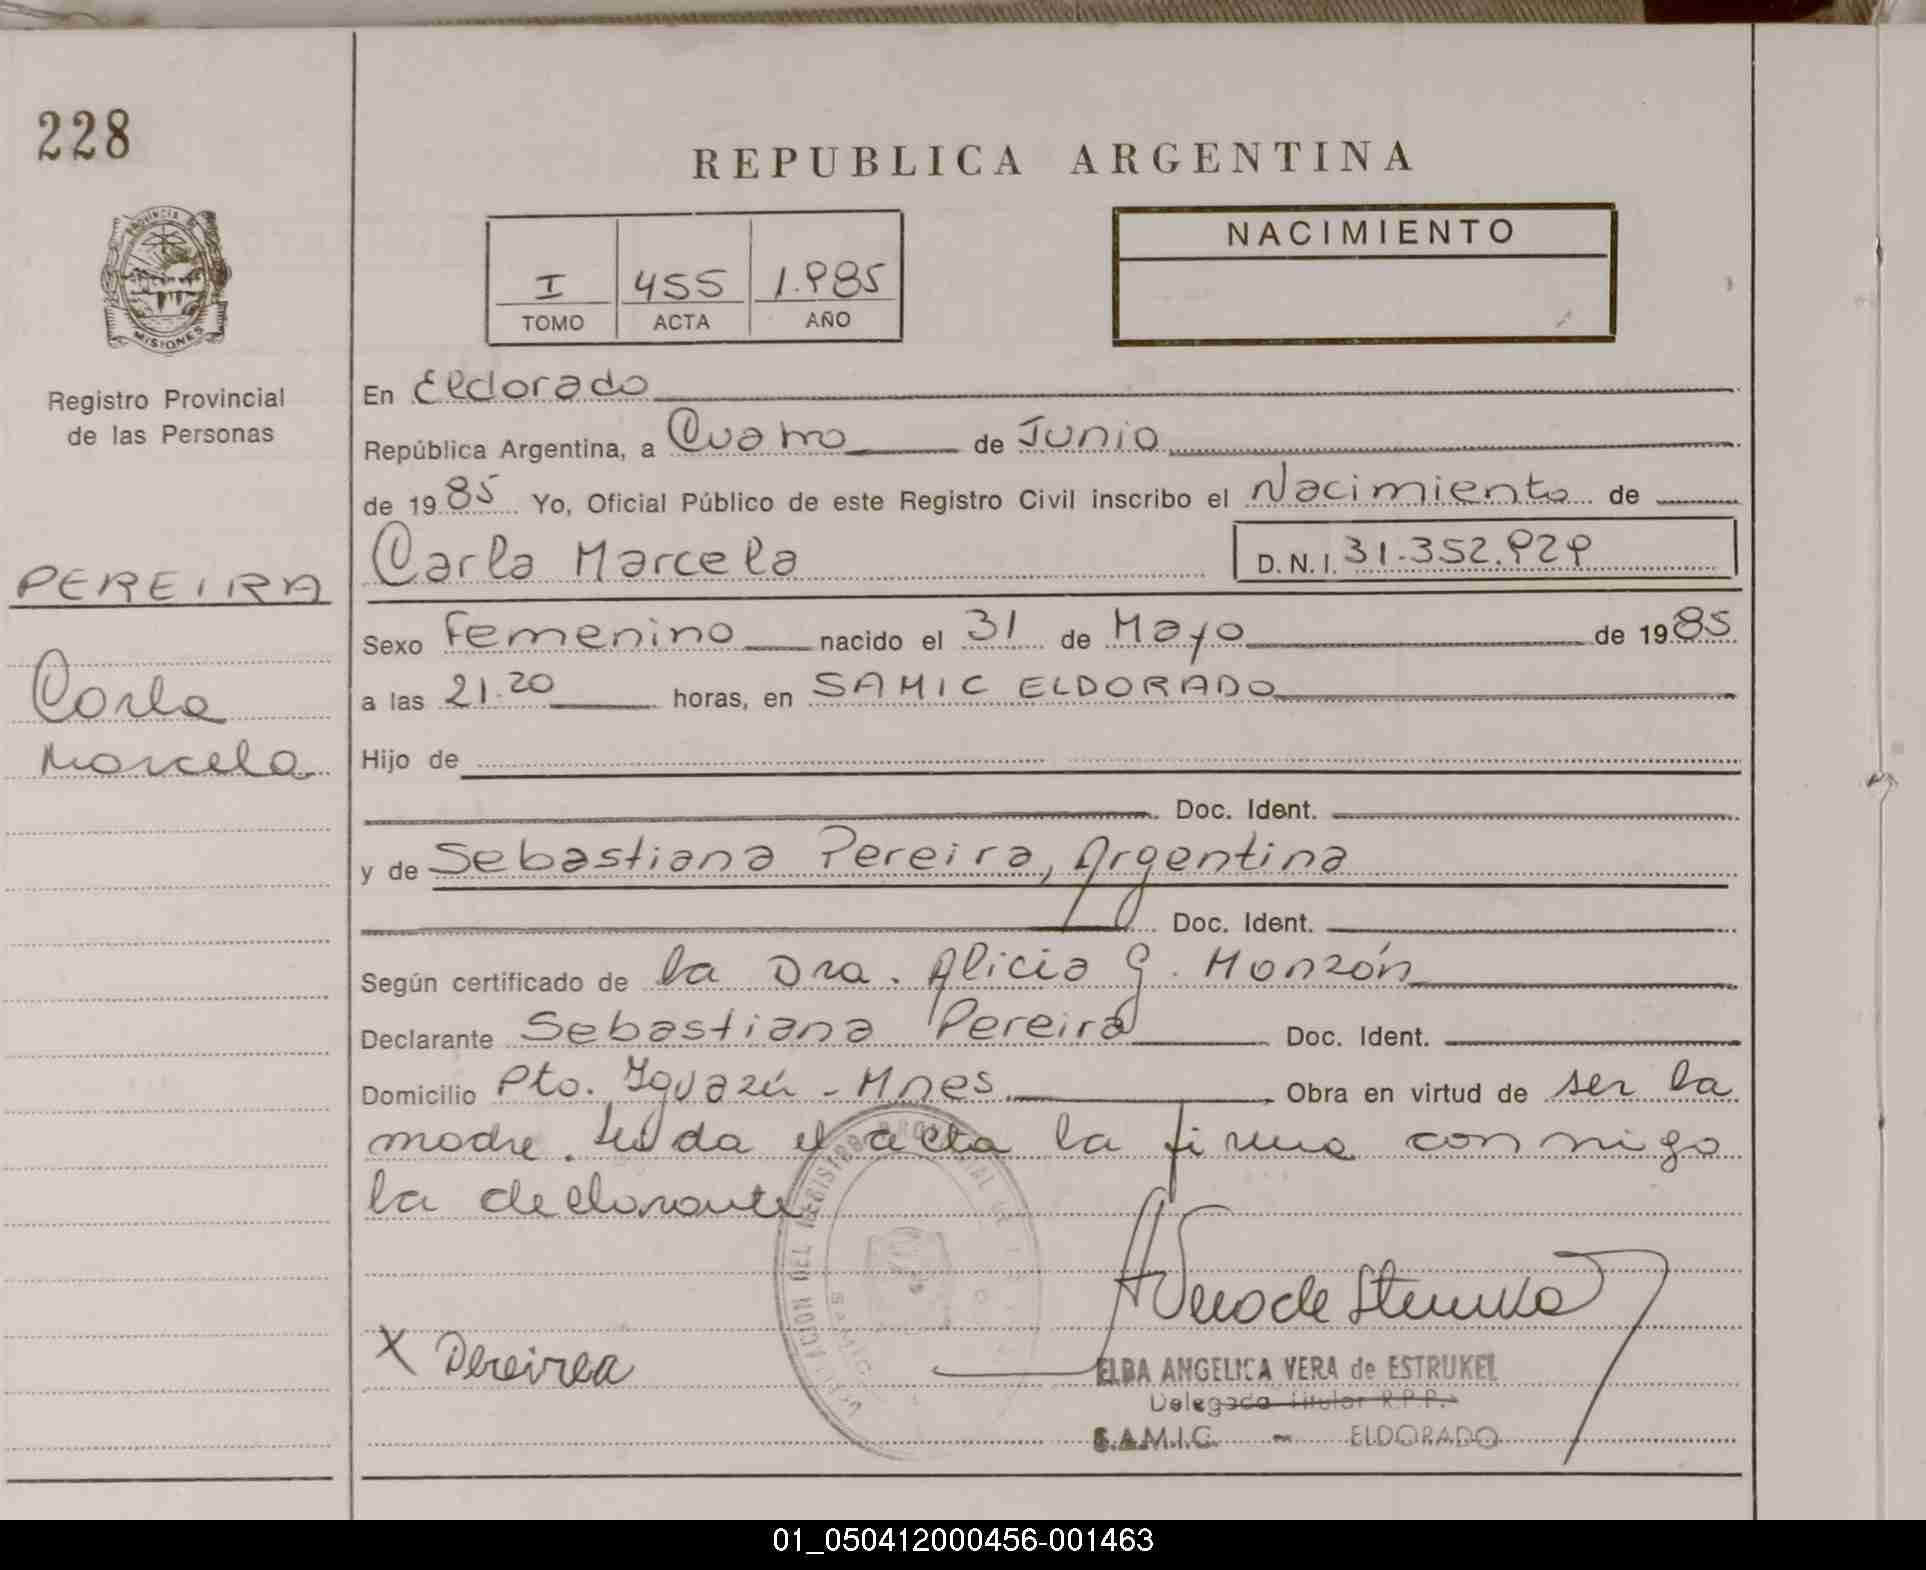 228
REPUBLICA ARGENTINA
PROVINCIA DE
MISIONES
I 455 1.985
TOMO ACTA AÑO
NACIMIENTO
Registro Provincial
de las Personas
PEREIRA
Carla
Marcela
En Eldorado
República Argentina, a Cuatro de Junio
de 1985 Yo, Oficial Público de este Registro Civil inscribo el Nacimiento de
Carla Marcela D.N.I. 31.352.929
Sexo Femenino nacido el 31 de Mayo de 1985
a las 21.20 horas, en SAMIC ELDORADO
Hijo de
Doc. Ident.
y de Sebastiana Pereira, Argentina
Doc. Ident.
Según certificado de la Dra. Alicia G. Monzón
Declarante Sebastiana Pereira Doc. Ident.
Domicilio Pto. Iguazú - Mnes. Obra en virtud de ser la
madre. Leída el acta la firma conmigo
la declarante
X Pereirea
ELBA ANGELICA VERA de ESTRUKEL
Delegada Titular R.P.P.
S.A.M.I.C. - ELDORADO
01_050412000456-001463